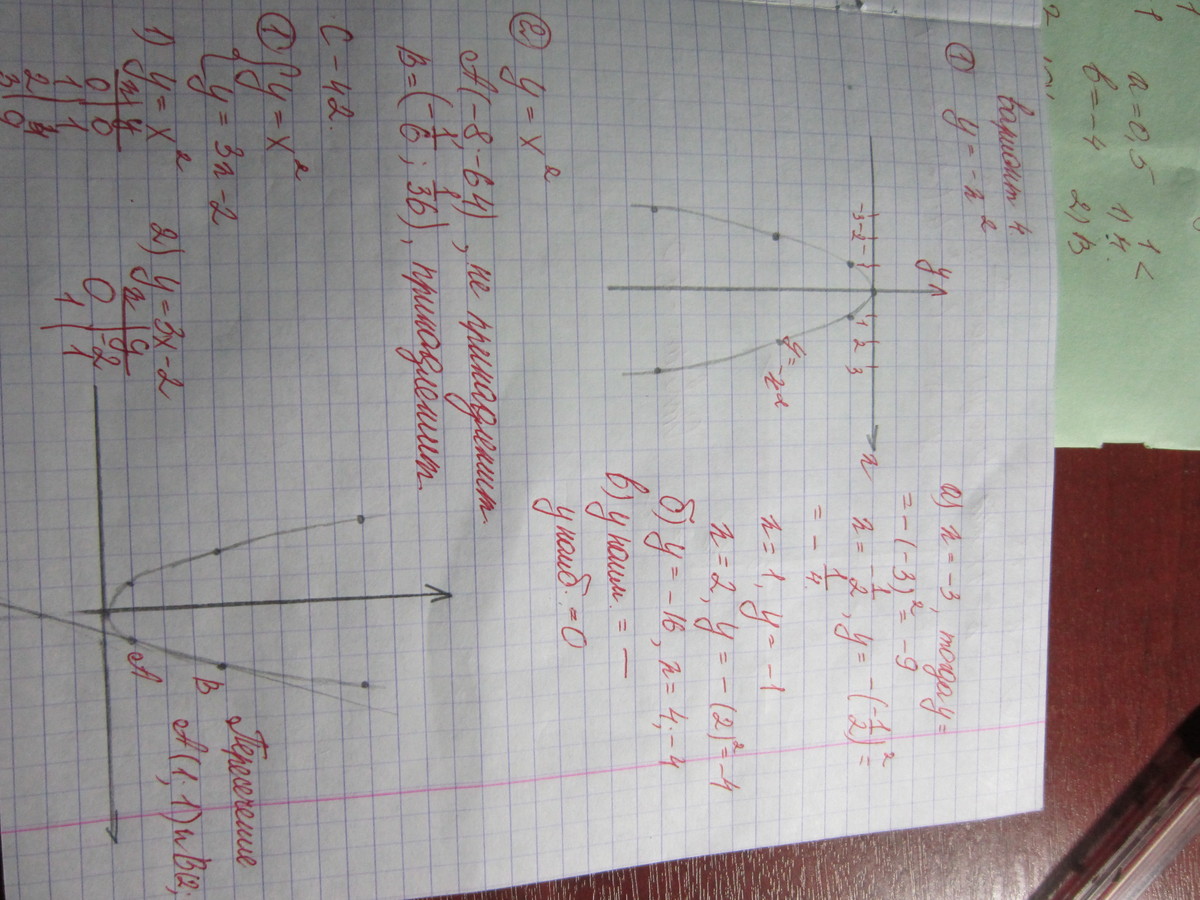 x = 0,5
b = -4
2) B
Вариант 4
① y = -x²
y
-3 -2 -1
1 2 3
x
y = -x²
а) x = -3, тогда y =
= -(-3)² = -9
x = -1/2, y = -(-1/2)² =
= -1/4
x = 1, y = -1
x = 2, y = -(2)² = -4
б) y = -16, x = 4; -4
в) y наим. = —
y наиб. = 0
② y = x²
A(-8; -64), не принадлежит.
B = (-1/6; 1/36), принадлежит.
C - 42.
① { y = x²
{ y = 3x - 2
1) y = x²
x | y
0 | 0
1 | 1
2 | 4
3 | 9
2) y = 3x - 2
x | y
0 | -2
1 | 1
A
B
Пересечение
A(1; 1) и B(2;